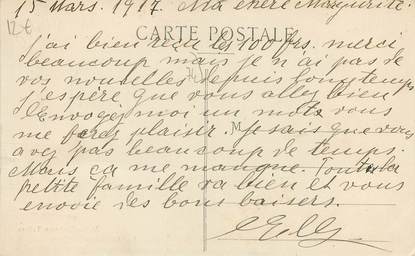 15 Mars. 1917. Ma chère Marguerite.
12€
CARTE POSTALE
j'ai bien reçu les 100 frs. merci
beaucoup mais je n'ai pas de
vos nouvelles depuis longtemps
j'espère que vous allez bien
Envoyez moi un mot vous
me ferez plaisir. Je sais que vous
avez pas beaucoup de temps.
Mais ça me manque. Toute la
petite famille va bien et vous
envoie des bons baisers.